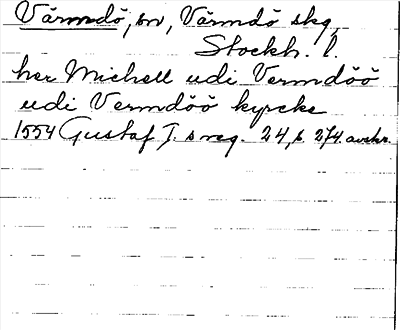 Värmdö, sn, Värmdö skg,
Stockh. l.
her Michell udi Vermdöö
udi Vermdöö kyrcke
1554 Gustaf I.s reg. 24, s. 274. avskr.